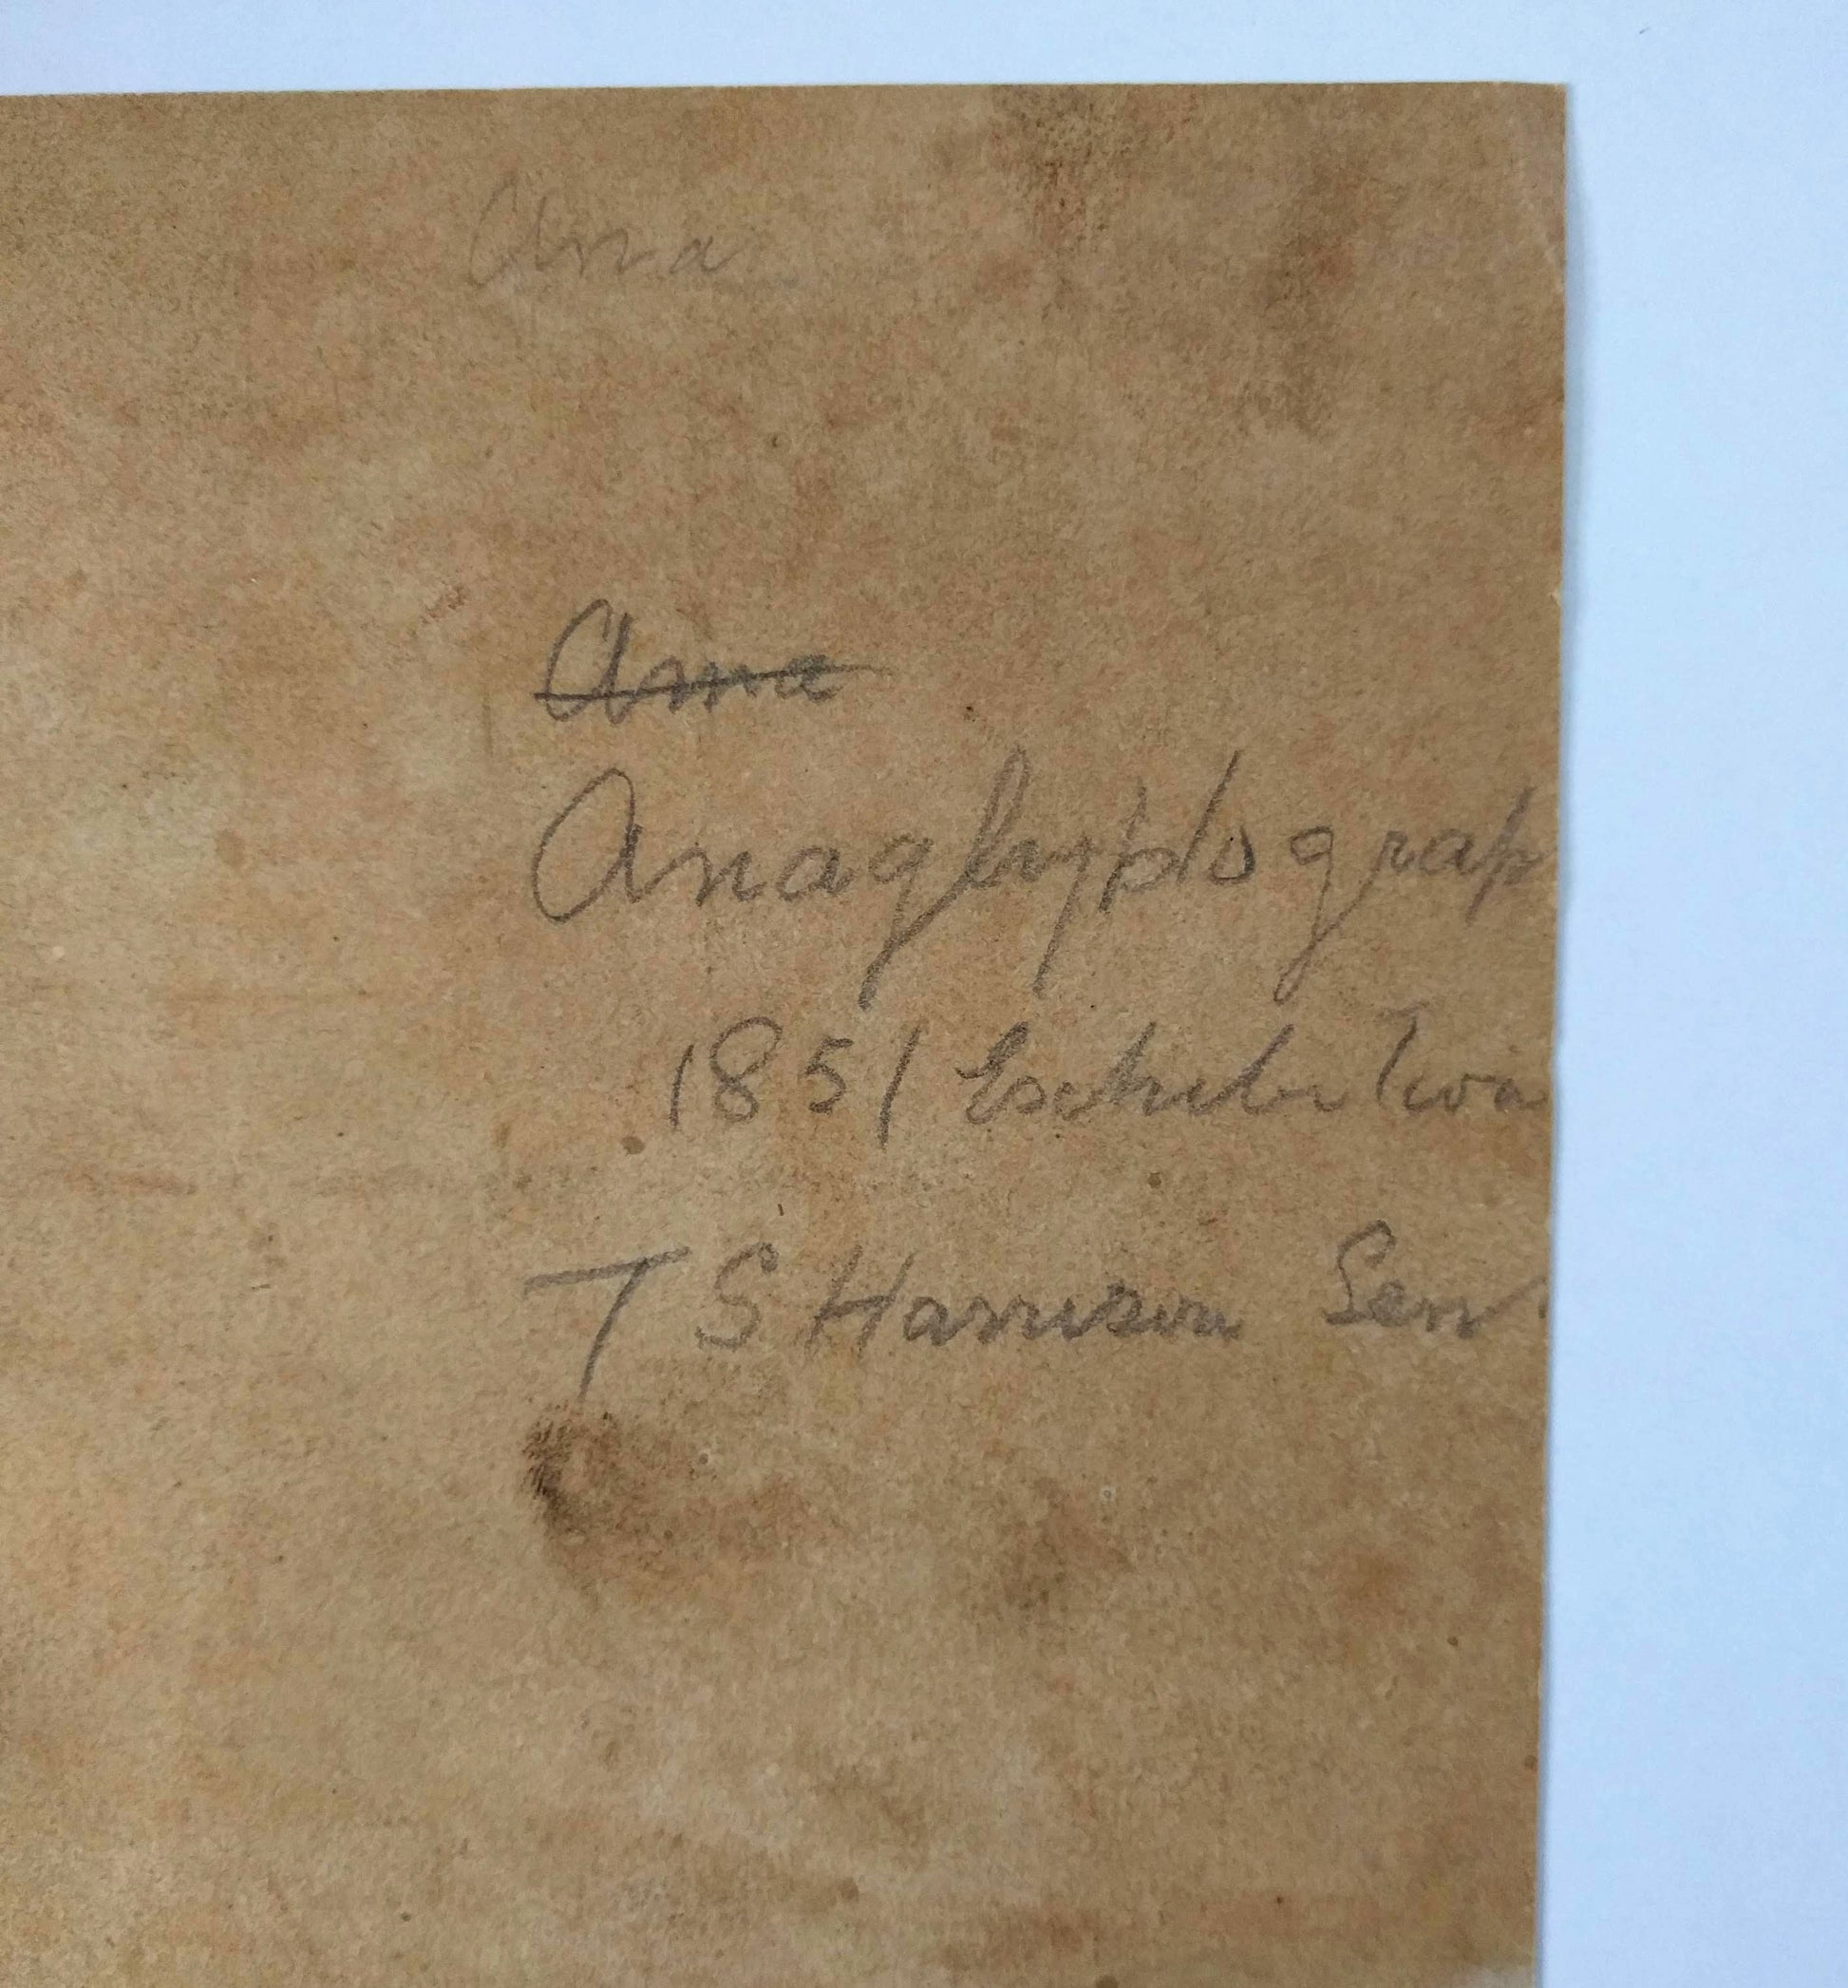 Ana
Ana
Anaglyptograp
1851 Exhibition
T S Harrison Senr